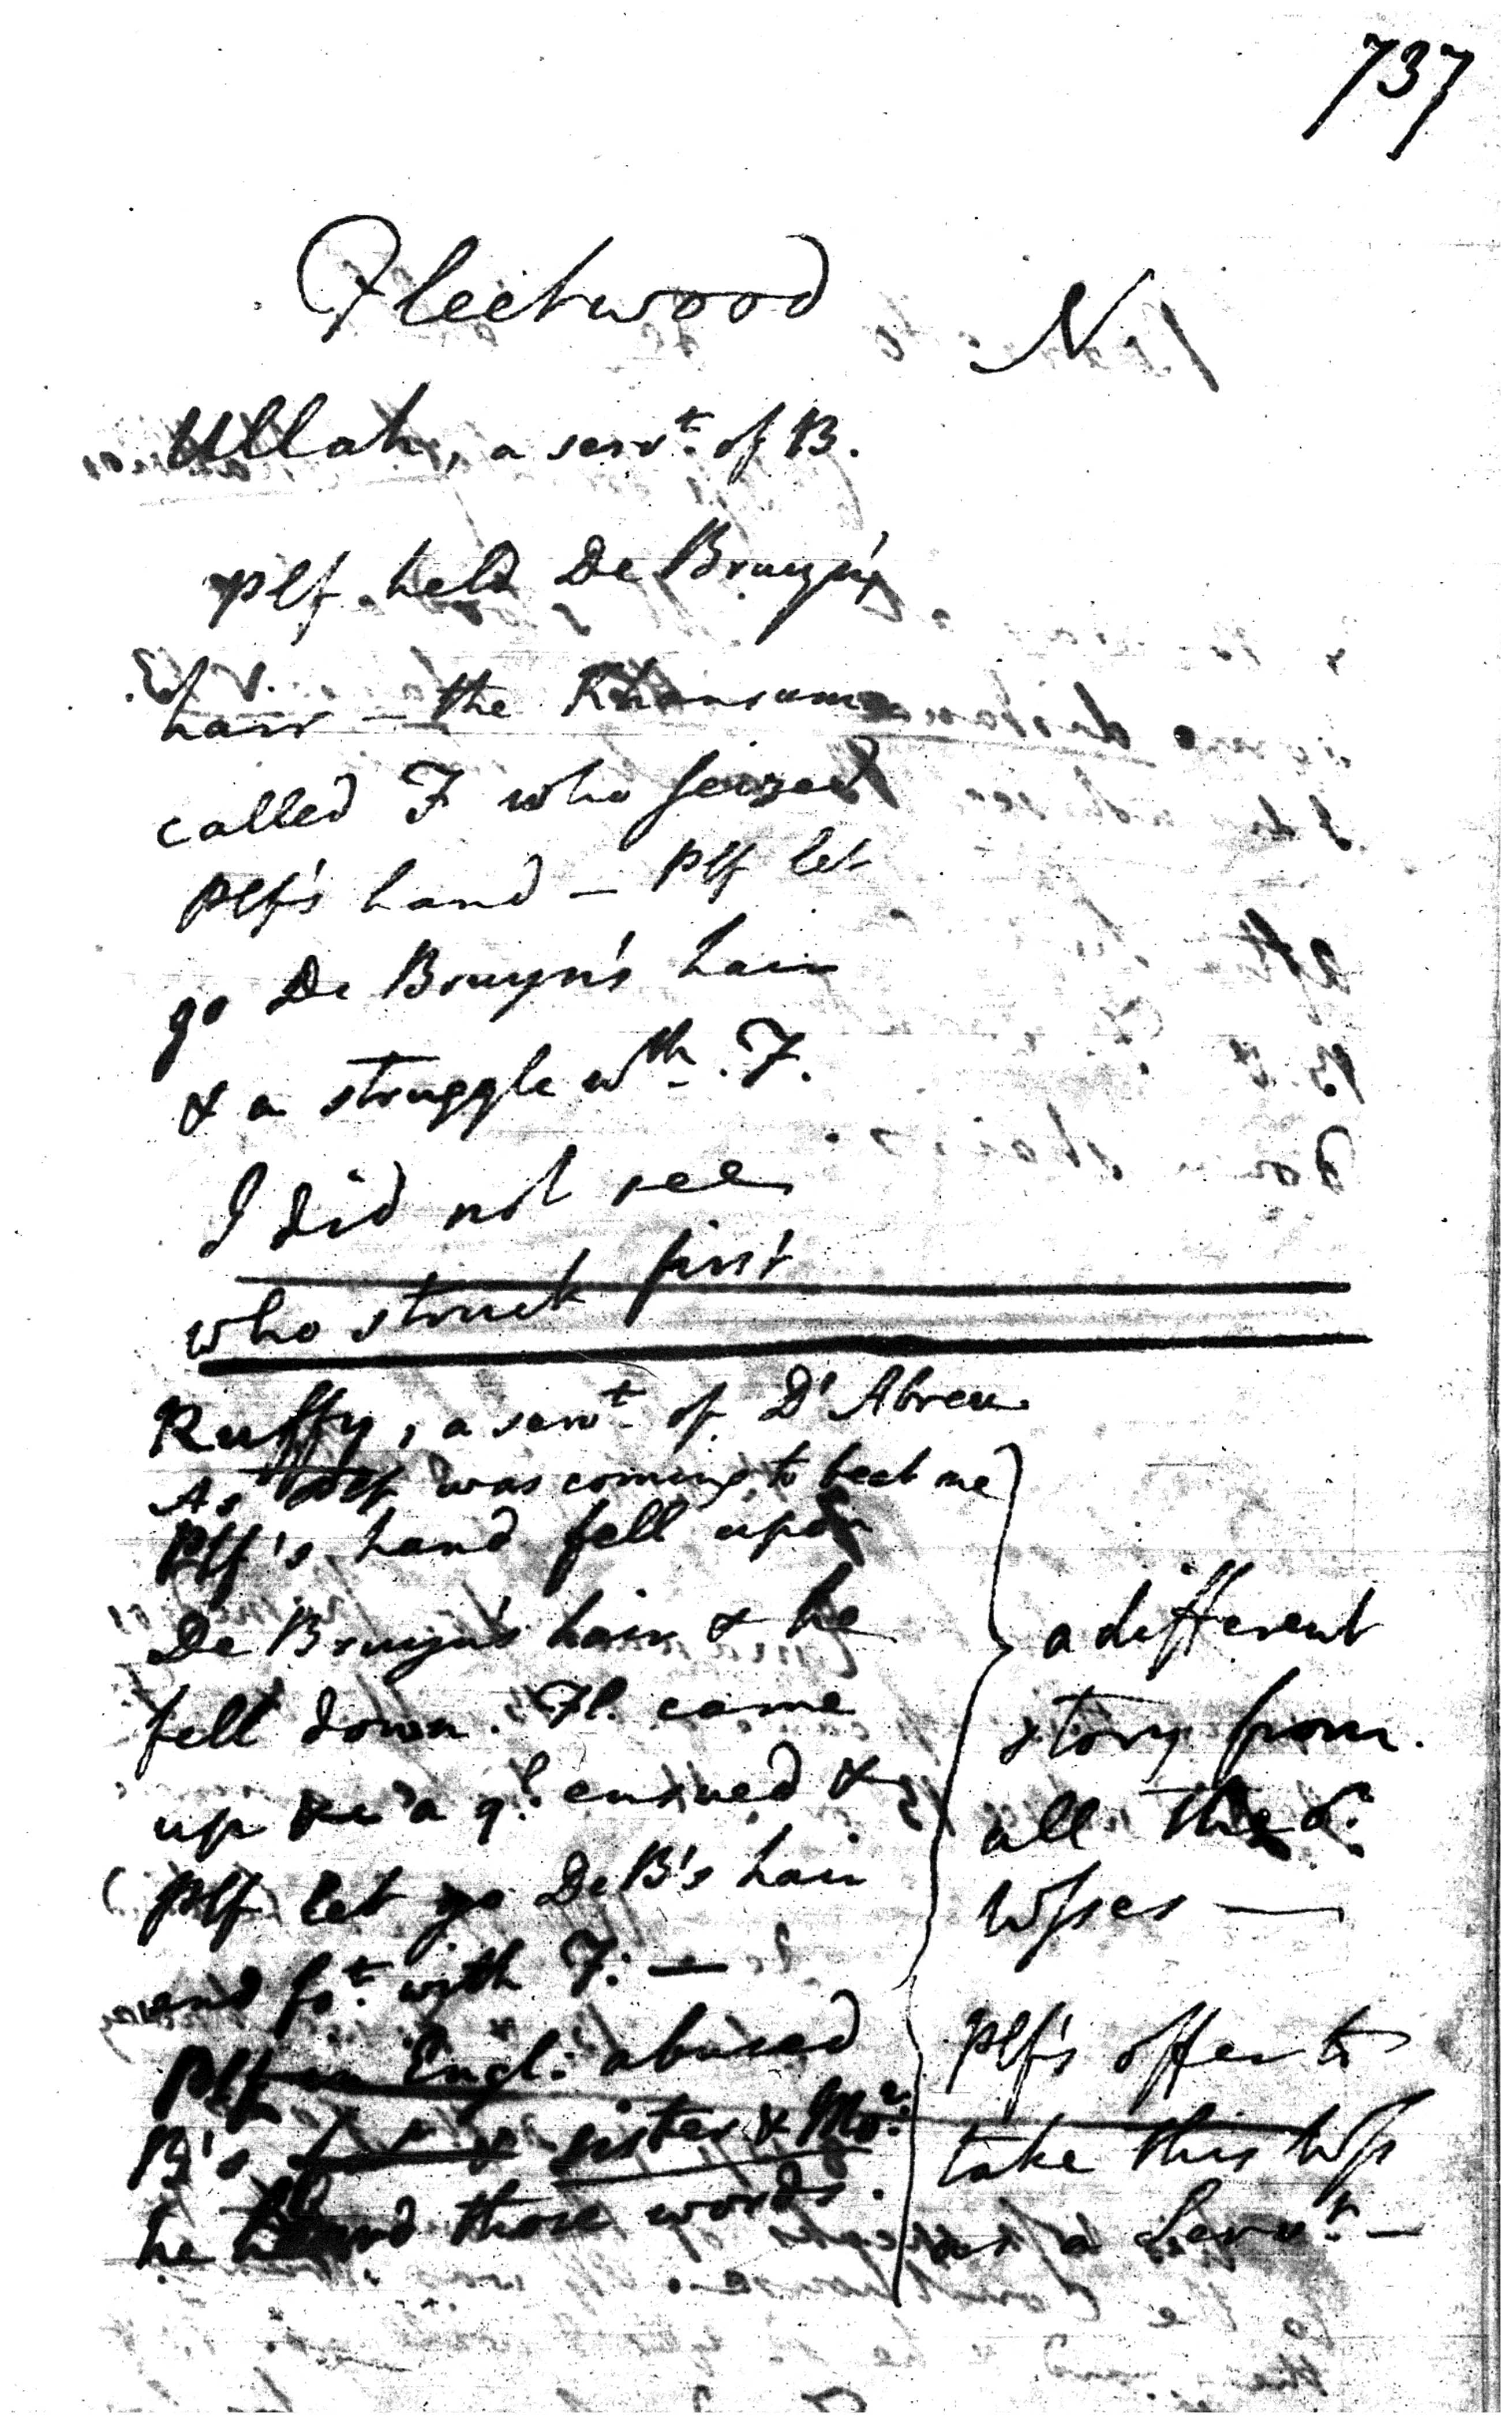 737
Fleetwood N
Ullah, a servt. of B.
Plf. held De Bruyn's
hair — the Khansuma
called F who seized
Plf's hand — Plf let
go De Bruyn's hair
& a struggle wth. F.
I did not see
who struck first
Ruffy, a servt. of D'Abreu.
As Plf was coming to beat me
Plf's hand fell upon
De Bruyn's hair & he
fell down. Fl. came
up a ql. ensued &
Plf let go De B's hair
and fot. with F. —
Plf in Engl: abused
B's sister & Mor.
he heard those words.
a different
story from
all the
Wsses —
Plf's offer to
take this Wss
as a Servt. —